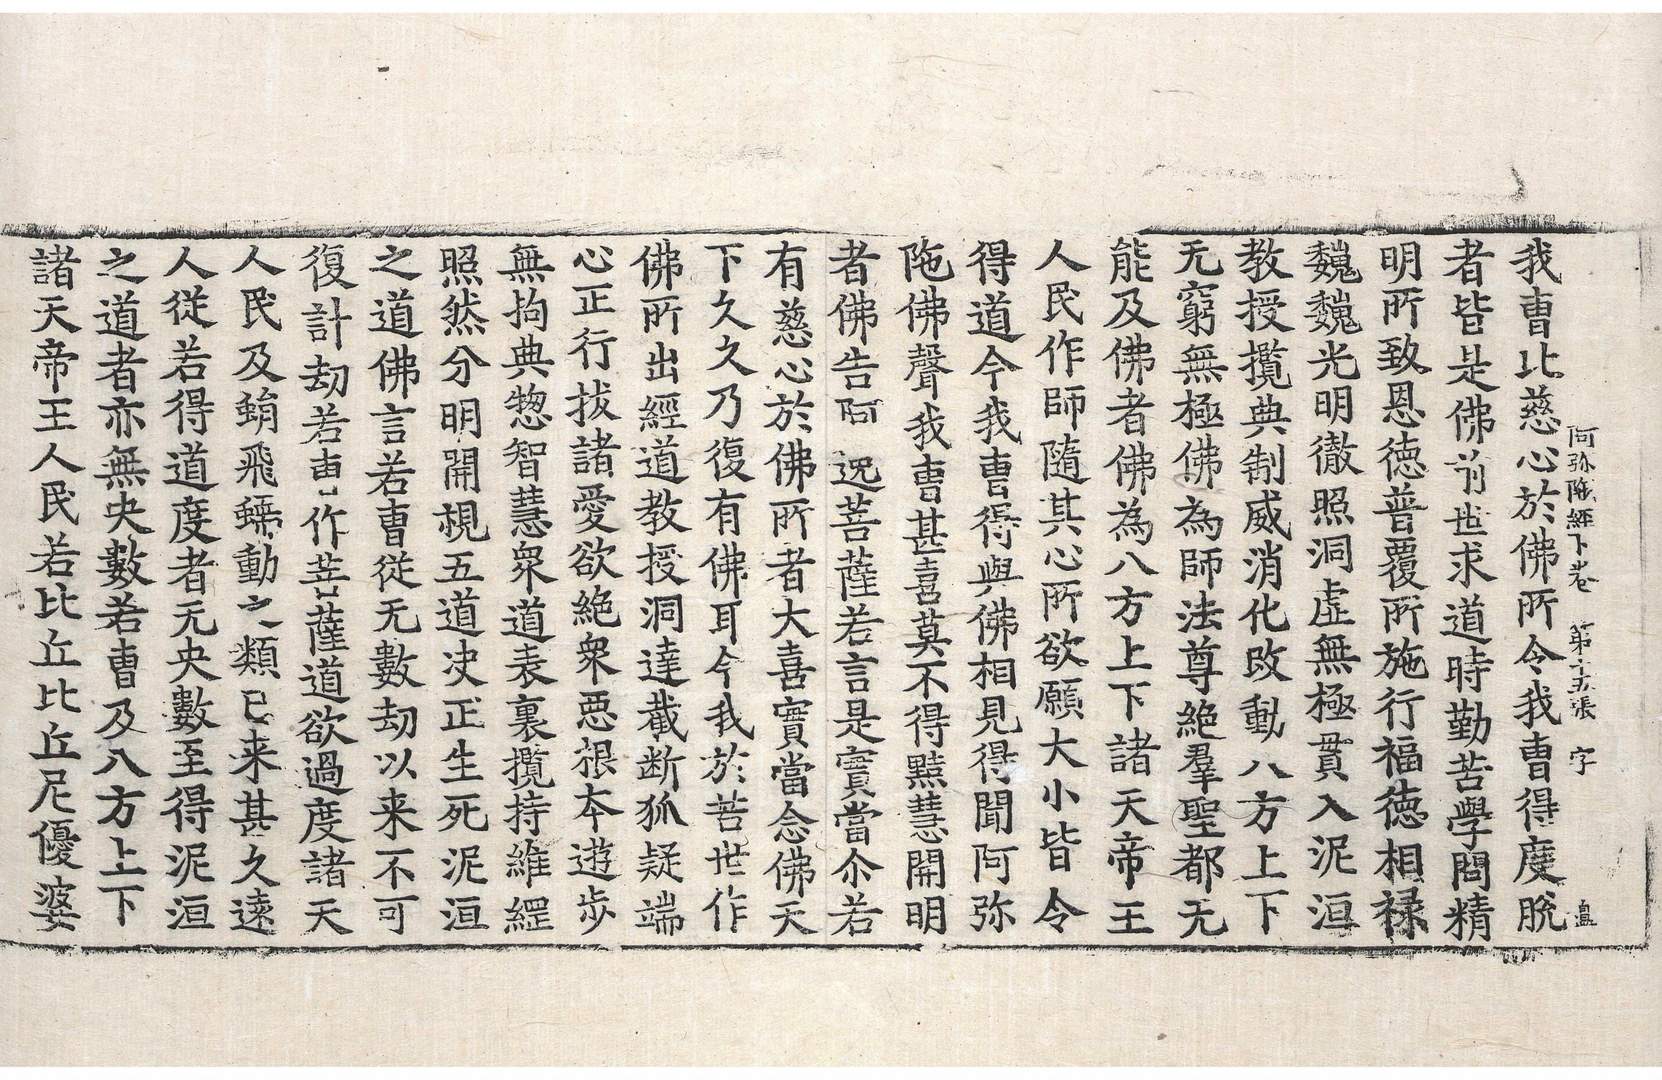 阿弥陁經下卷 第十五張 字 盖
我曹比慈心於佛所令我曹得度脫
者皆是佛前世求道時勤苦學問精
明所致恩德普覆所施行福德相祿
魏魏光明徹照洞虛無極貫入泥洹
教授攬典制威消化改動八方上下
无窮無極佛為師法尊絕羣聖都无
能及佛者佛為八方上下諸天帝王
人民作師隨其心所欲願大小皆令
得道今我曹得與佛相見得聞阿弥
陁佛聲我曹甚喜莫不得黠慧開明
者佛告阿逸菩薩若言是實當尒若
有慈心於佛所者大喜實當念佛天
下久久乃復有佛耳今我於苦世作
佛所出經道教授洞達截断狐疑端
心正行拔諸愛欲絕衆惡根夲遊步
無拘典惣智慧衆道表裏攬持維綱
照然分明開視五道决正生死泥洹
之道佛言若曹從无數劫以来不可
復計劫若曹作菩薩道欲過度諸天
人民及蜎飛蠕動之類已来甚久遠
人從若得道度者无央數至得泥洹
之道者亦無央數若曹及八方上下
諸天帝王人民若比丘比丘尼優婆